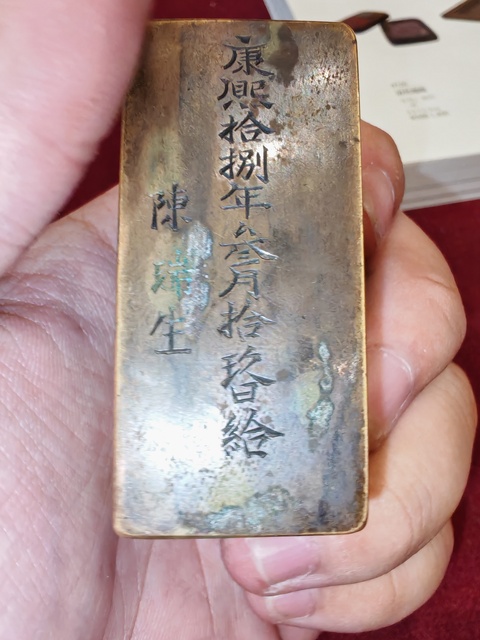 康熙拾捌年叁月拾玖日給
陳瑞生